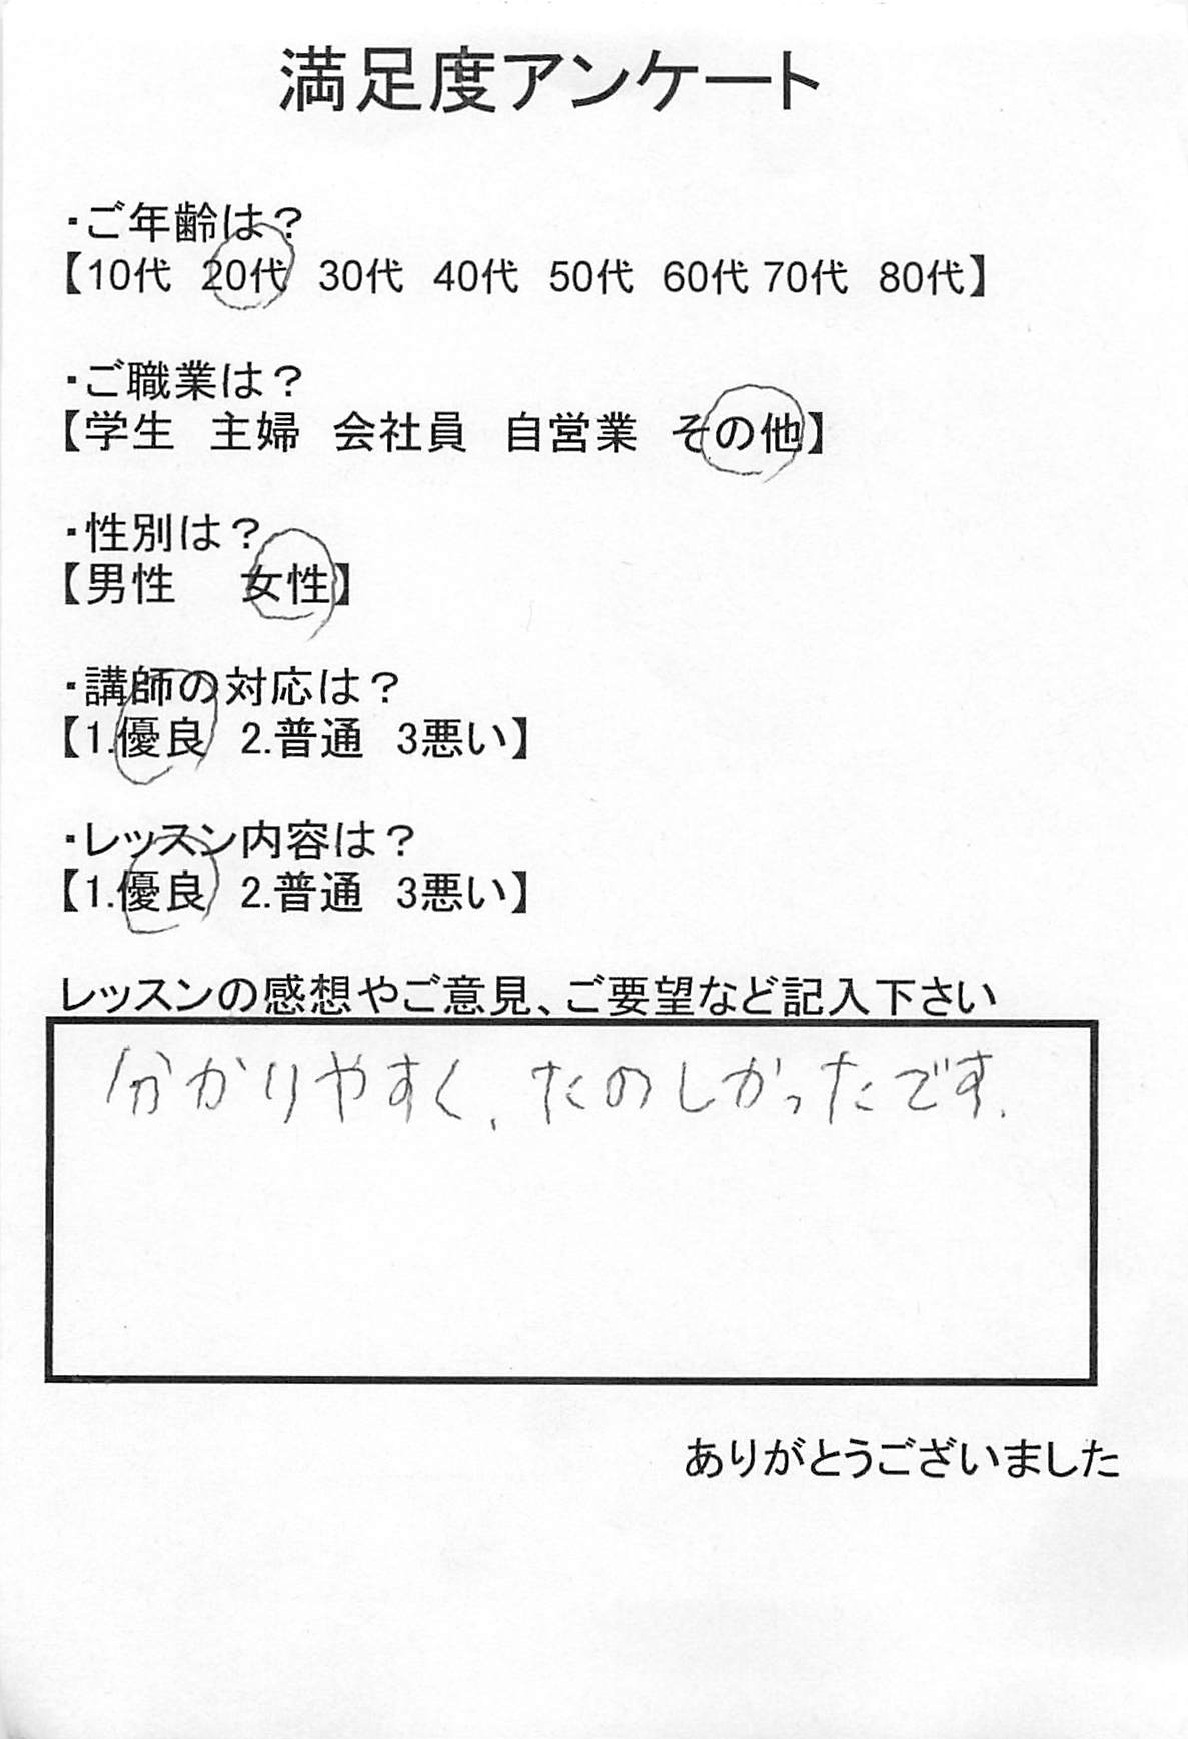 満足度アンケート
・ご年齢は？
【10代 20代 30代 40代 50代 60代 70代 80代】
・ご職業は？
【学生 主婦 会社員 自営業 その他】
・性別は？
【男性 女性】
・講師の対応は？
【1.優良 2.普通 3悪い】
・レッスン内容は？
【1.優良 2.普通 3悪い】
レッスンの感想やご意見、ご要望など記入下さい
分かりやすく、たのしかったです.
ありがとうございました